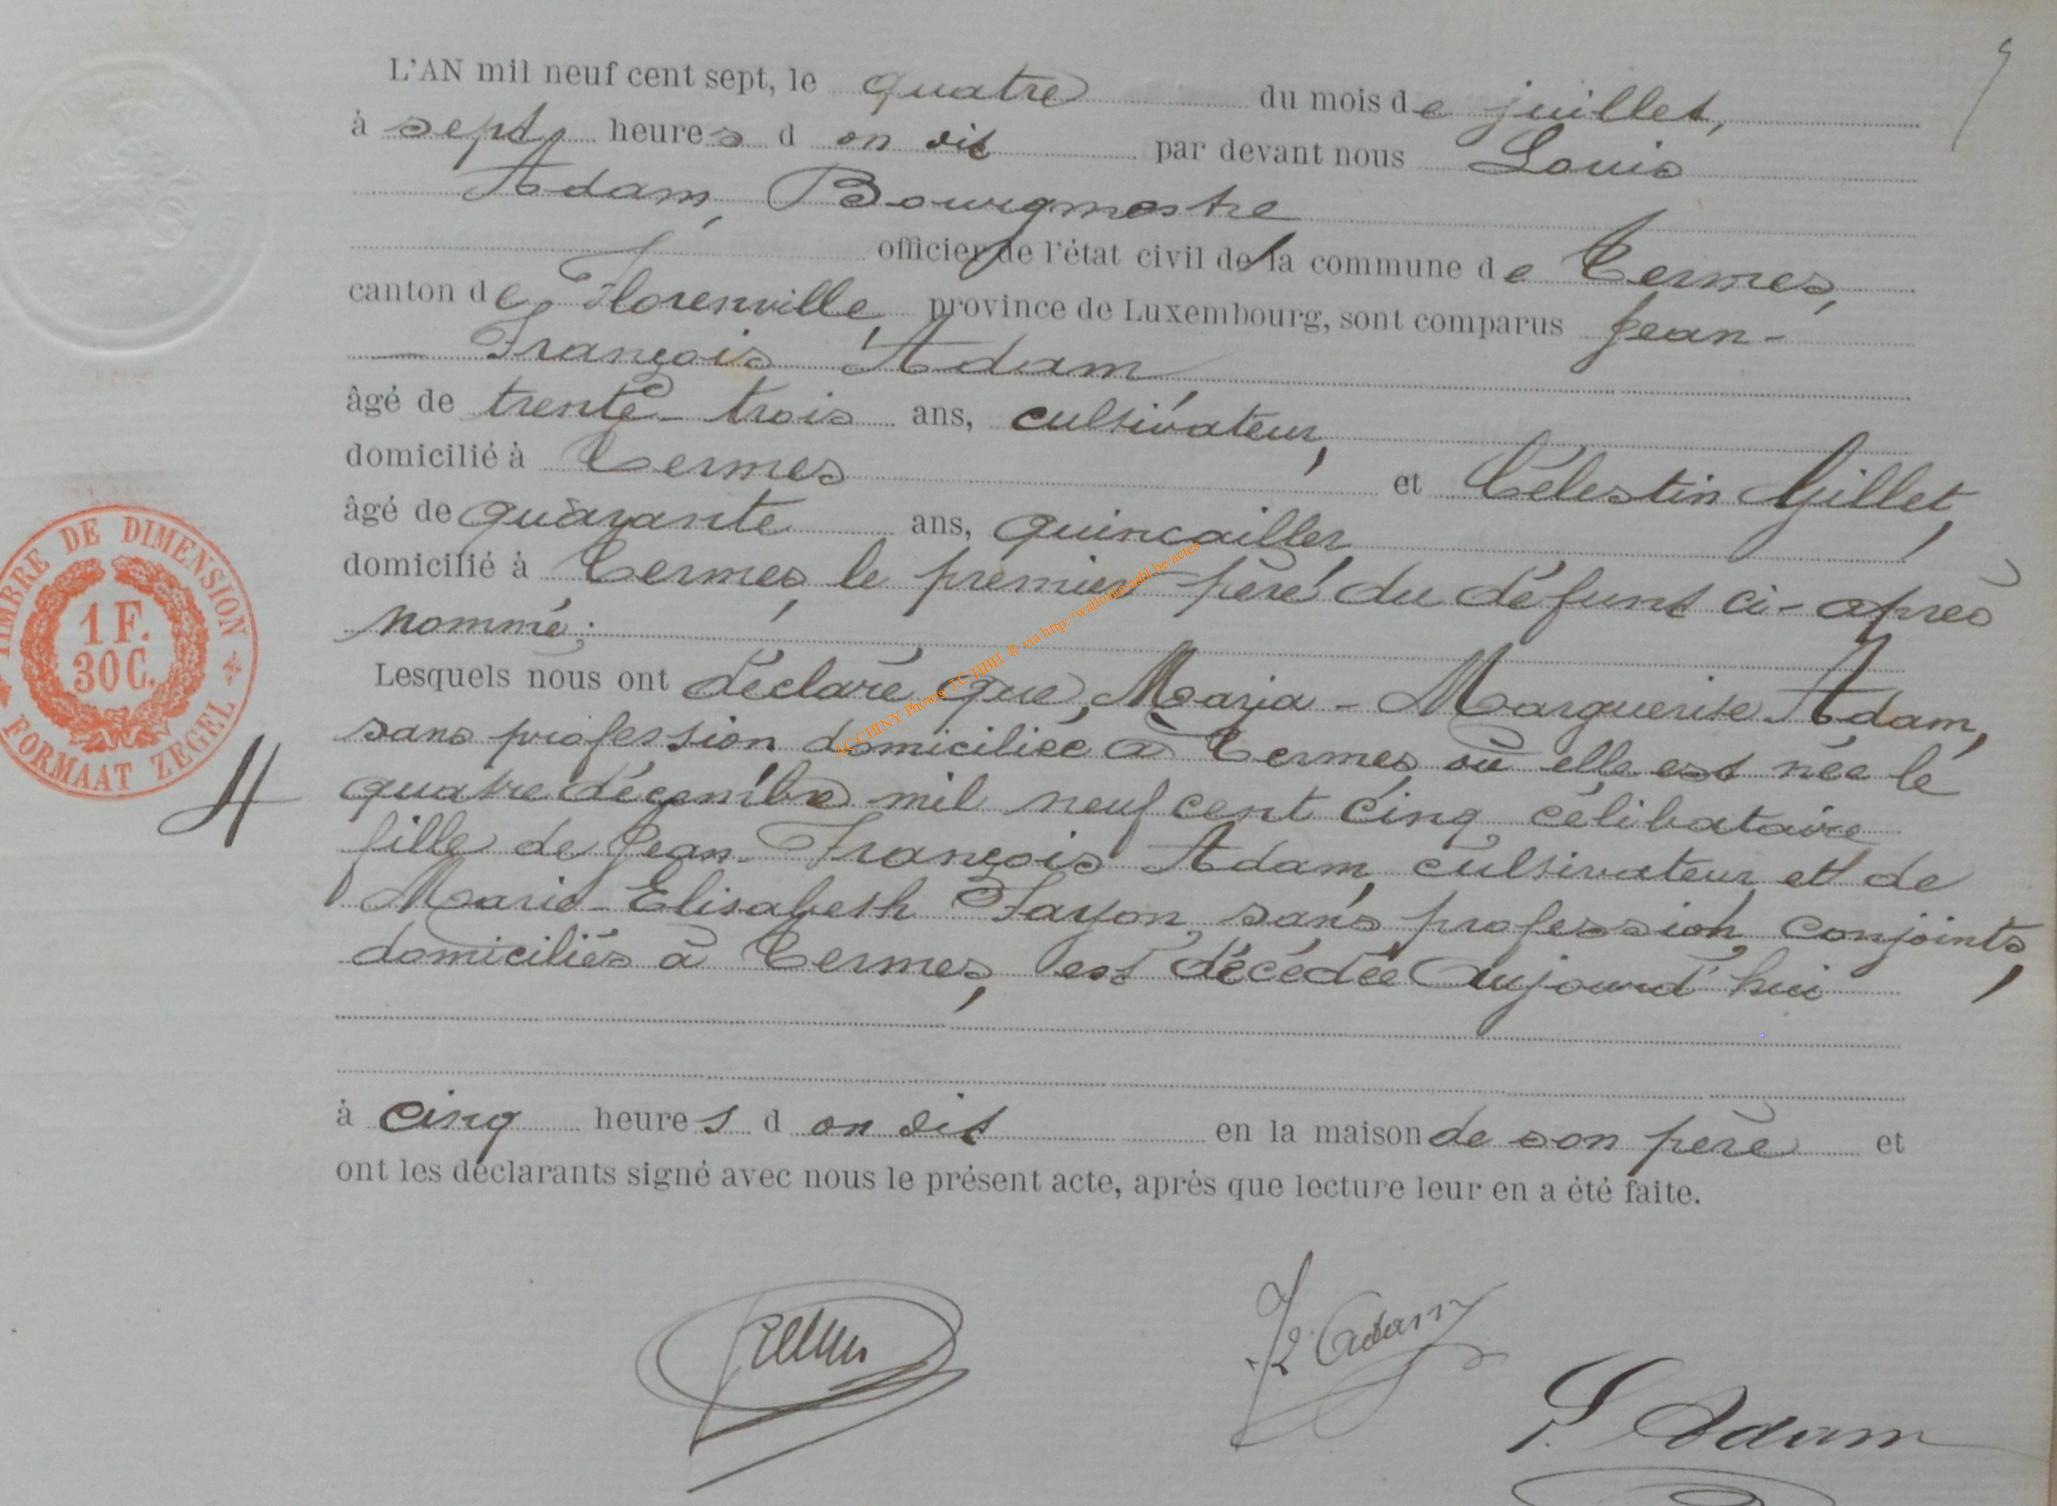 L'AN mil neuf cent sept, le quatre du mois de juillet,
à sept heures d on dit par devant nous Louis
Adam, Bourgmestre
officier de l'état civil de la commune de Termes,
canton de Florenville, province de Luxembourg, sont comparus Jean-
François Adam
âgé de trente-trois ans, cultivateur,
domicilié à Termes et Célestin Gillet,
âgé de quarante ans, quincailler
domicilié à Termes, le premier père du défunt ci-après
nommé;
Lesquels nous ont déclaré que, Maria-Marguerite Adam,
sans profession, domiciliée à Termes, où elle est née le
quatre décembre mil neuf cent cinq, célibataire
fille de Jean-François Adam, cultivateur, et de
Marie-Elisabeth Fayon, sans profession, conjoints,
domiciliés à Termes, est décédée aujourd'hui
à cinq heures d on dit en la maison de son père et
ont les déclarants signé avec nous le présent acte, après que lecture leur en a été faite.
TIMBRE DE DIMENSION
1 F.
30 C.
FORMAAT ZEGEL
4
Adam
L. Adam